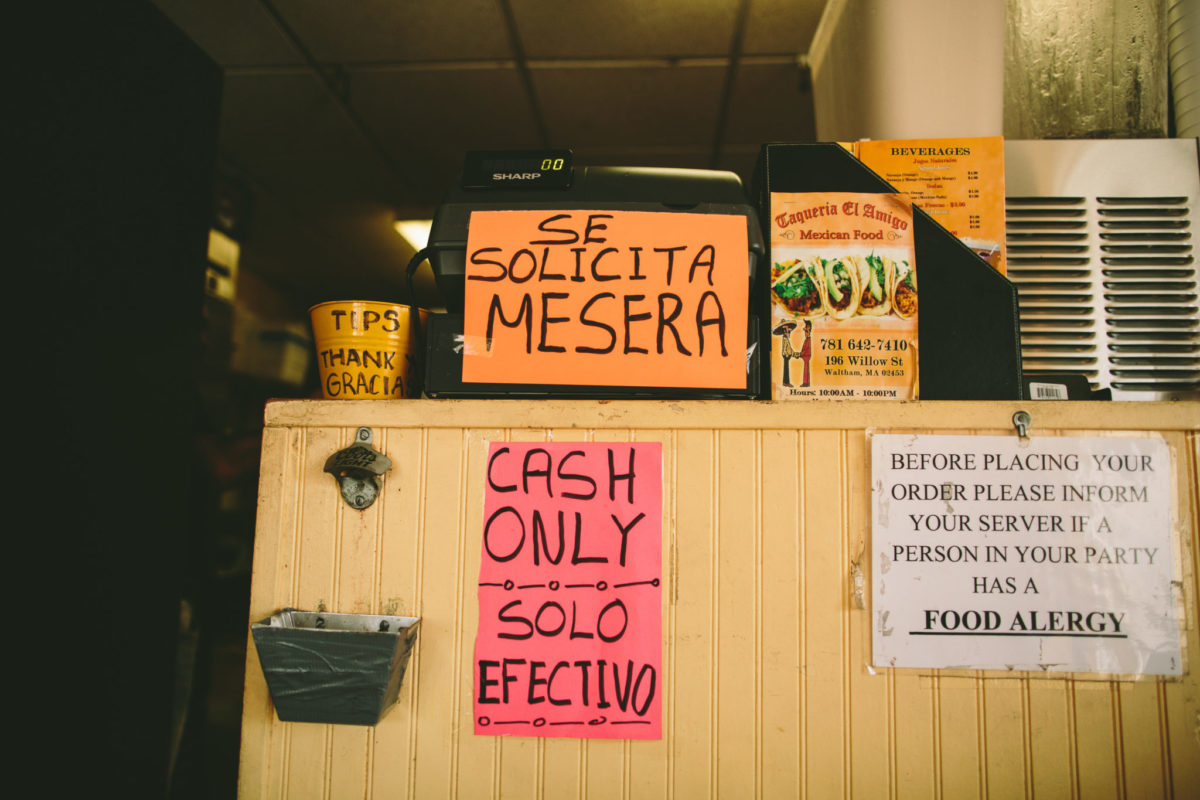 00
SHARP
SE
SOLICITA
MESERA
TIPS
THANK
GRACIAS
BEVERAGES
Jugos Naturales
Sodas
Taqueria El Amigo
Mexican Food
781 642-7410
196 Willow St
Waltham, MA 02453
Hours: 10:00AM - 10:00PM
CASH
ONLY
SOLO
EFECTIVO
BEFORE PLACING YOUR
ORDER PLEASE INFORM
YOUR SERVER IF A
PERSON IN YOUR PARTY
HAS A
FOOD ALERGY